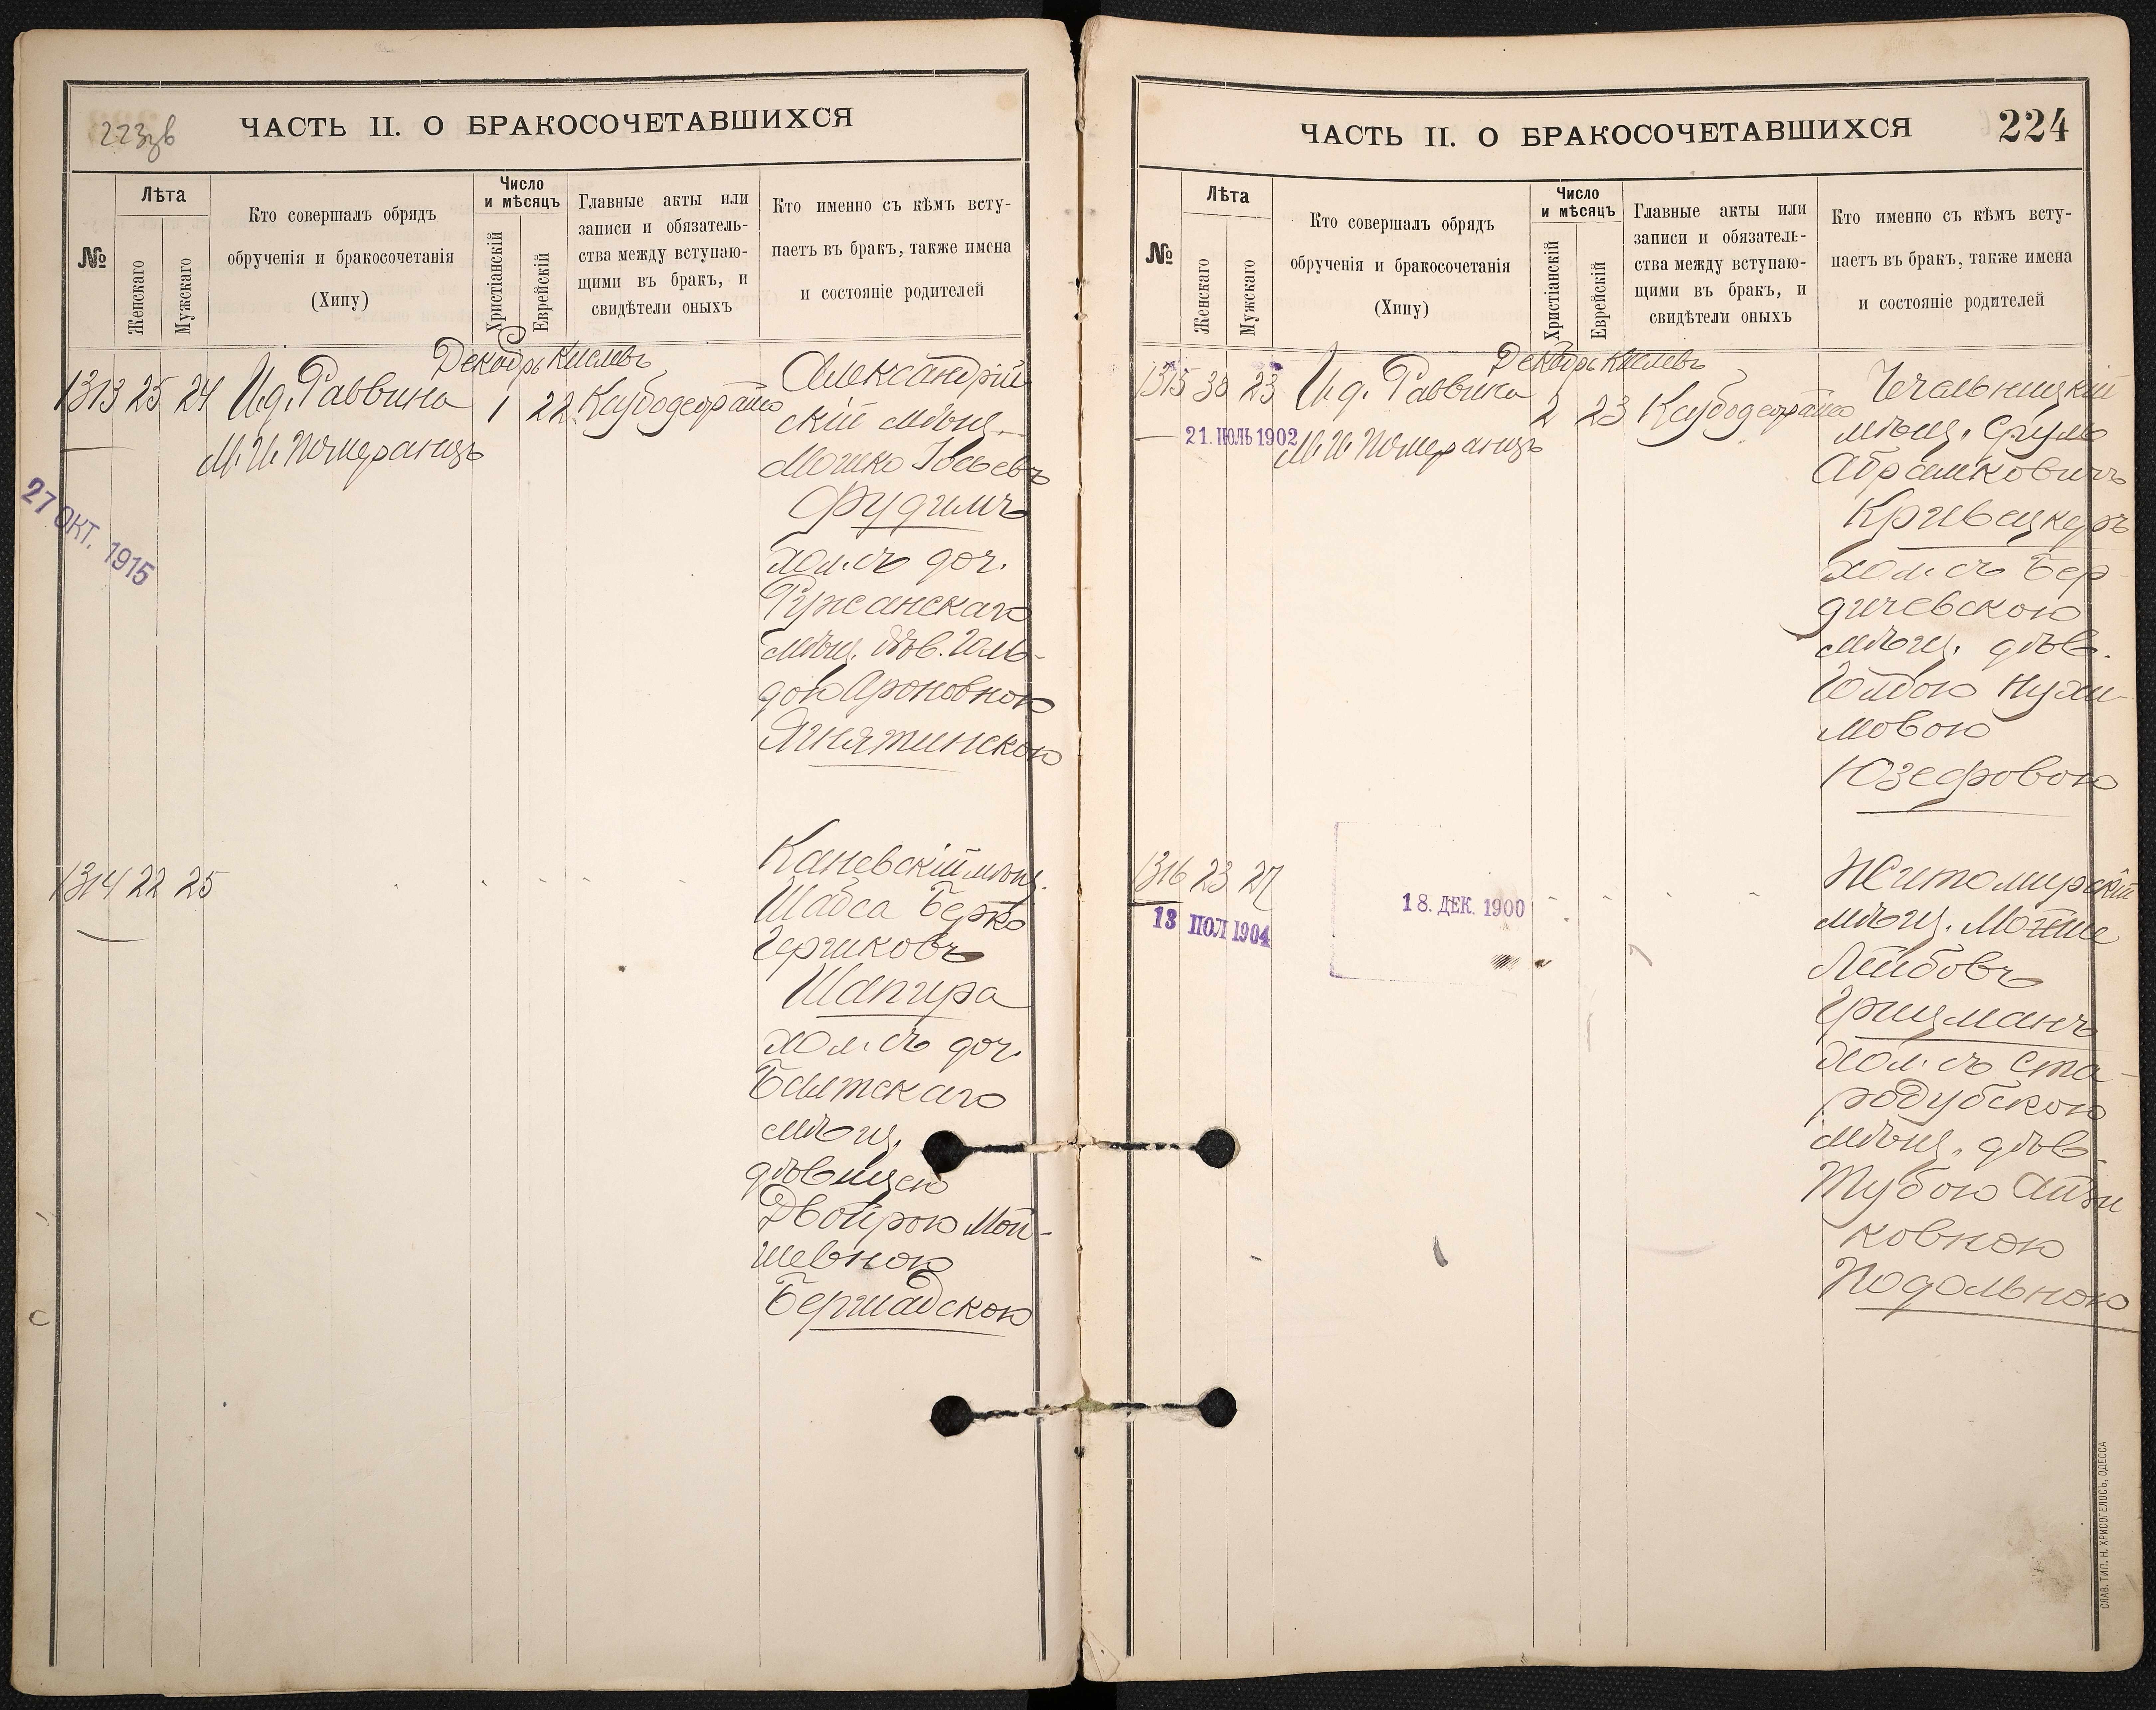 223зв
ЧАСТЬ II. О БРАКОСОЧЕТАВШИХСЯ
№
Лѣта
Женскаго
Мужскаго
Кто совершалъ обрядъ
обрученія и бракосочетанія
(Хипу)
Число
и мѣсяцъ
Христіанскій
Еврейскій
Главные акты или
записи и обязатель-
ства между вступаю-
щими въ бракъ, и
свидѣтели оныхъ
Кто именно съ кѣмъ всту-
паетъ въ бракъ, также имена
и состояніе родителей
Декабрь Кислевъ
1313 25 24 И.д. Раввина 1 22
М. И. Померанцъ
27 ОКТ. 1915
Александрій
скій мѣщ.
Мошко Іосьевъ
Фудимъ
хол. съ доч.
Ружанскаго
мѣщ. дѣв. Голь-
дою Ароновною
Ягнятинскою
1314 22 25
Каневскій мѣщ.
Шабса Берко
Гершковъ
Шапира
хол. съ доч.
Балтскаго
мѣщ.
дѣвицею
Двойрою Мой-
шевною
Бершадскою
ЧАСТЬ II. О БРАКОСОЧЕТАВШИХСЯ
224
№
Лѣта
Женскаго
Мужскаго
Кто совершалъ обрядъ
обрученія и бракосочетанія
(Хипу)
Число
и мѣсяцъ
Христіанскій
Еврейскій
Главные акты или
записи и обязатель-
ства между вступаю-
щими въ бракъ, и
свидѣтели оныхъ
Кто именно съ кѣмъ всту-
паетъ въ бракъ, также имена
и состояніе родителей
Декабрь Кислевъ
1315 30 23 И.д. Раввина 2 23
21. ІЮЛЬ 1902
М. И. Померанцъ
Чечельницкій
мѣщ. Сруль
Абрамковичъ
Кривецкеръ
хол. съ Бер-
дичевскою
мѣщ. дѣв.
Голдою Нухи-
мовою
Юзефовою
1316 23 27
13 ІЮЛ 1904
18. ДЕК. 1900
Житомирскій
мѣщ. Мойше
Лейбовъ
Грицманъ
хол. съ Ста-
родубскою
мѣщ. дѣв.
Тубою Айзи
ковною
Подольною
СЛАВ. ТИП. Н. ХРИСОГЕЛОСЪ, ОДЕССА